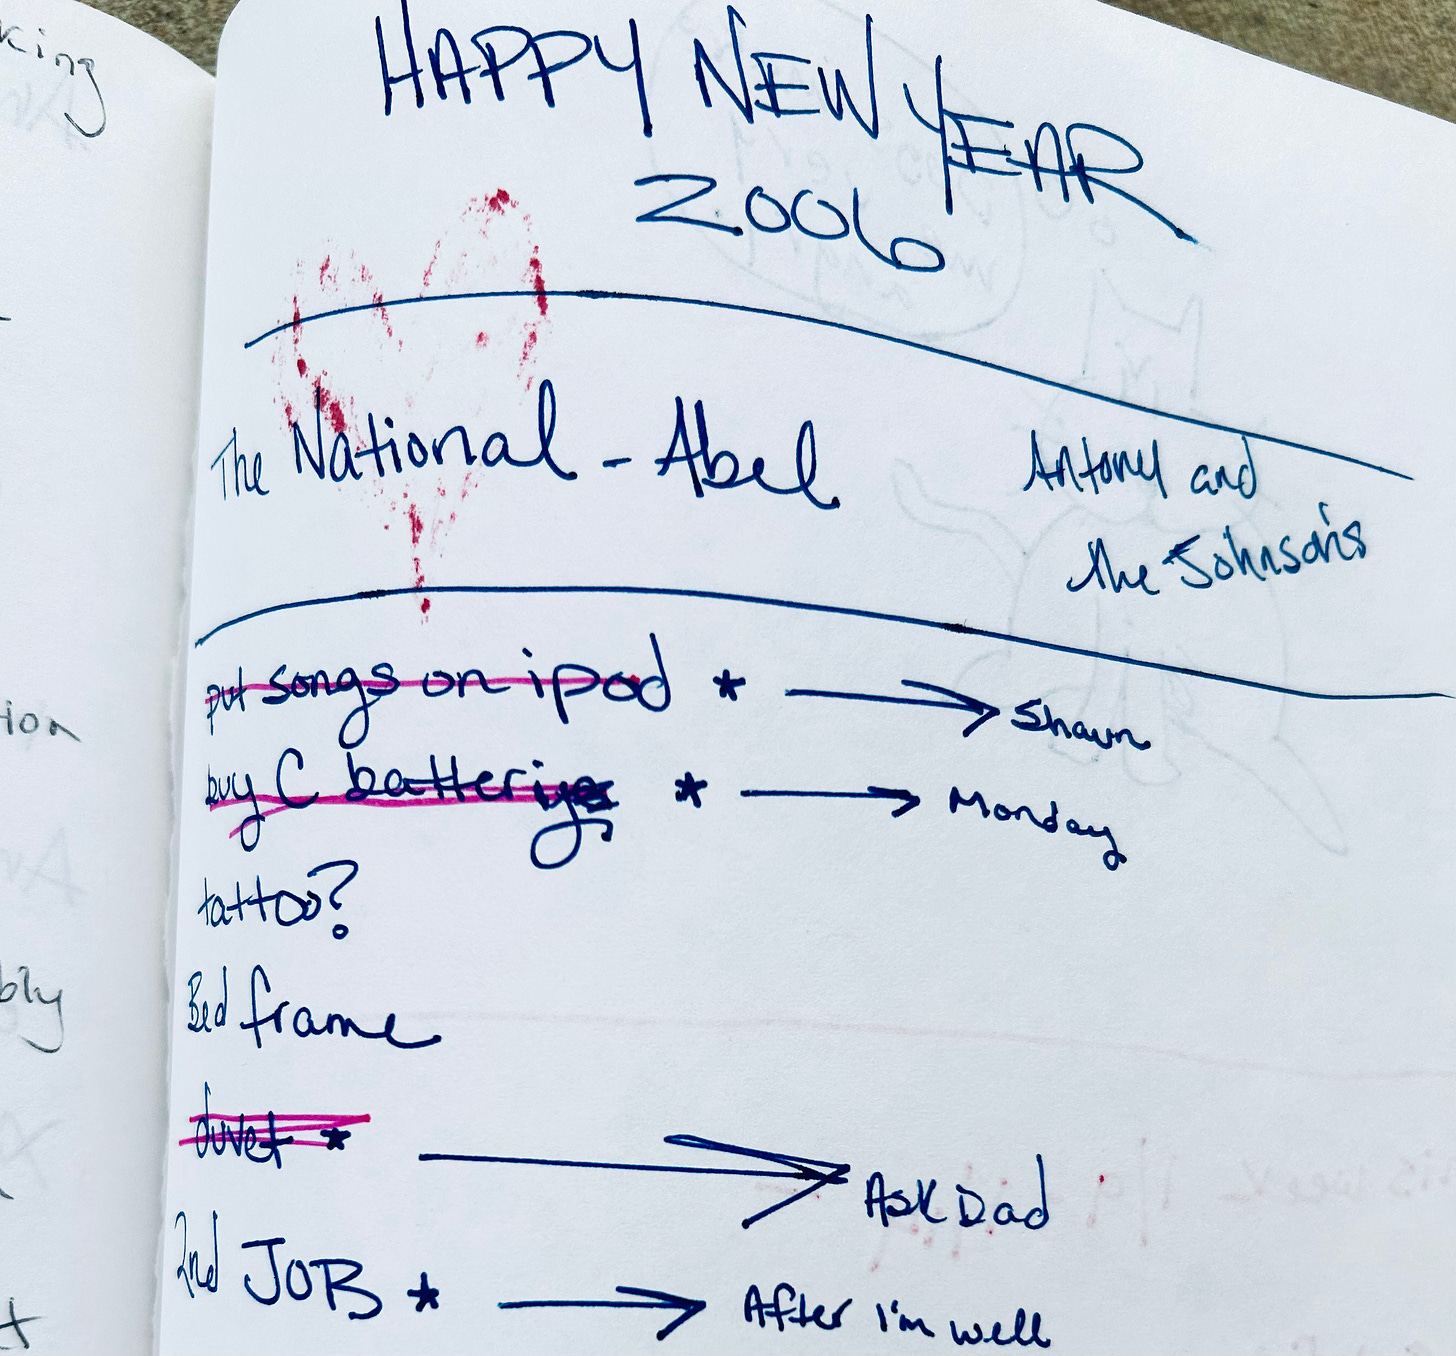 king
HAPPY NEW YEAR
2006
The National - Abel
Antony and
the Johnsons
put songs on ipod * → Shaun
buy C batteriyes * → Monday
tattoo?
Bed frame
duvet * → Ask Dad
2nd JOB * → After I'm well
ion
bly
t